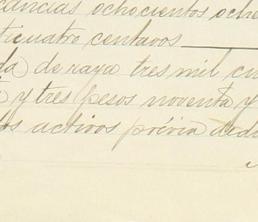 ancias ochocientos oche
ticuatro centavos
da de raya tres mil cu
y tres pesos noventa y
os activos prévia dedu